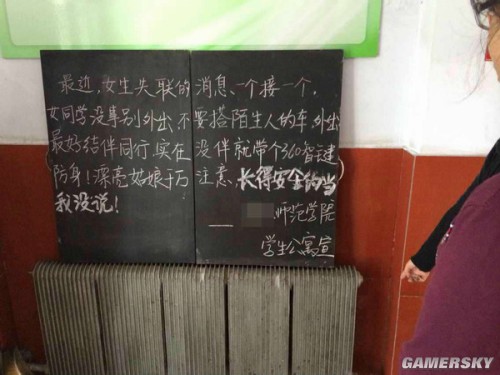 最边,女生失联的消息、一个接一个,
女同学没事别外出、不要搭陌生人的车,外出
最好结伴同行,实在没伴就带个360智键
防身!漂亮姑娘千万注意,长得安全的当
我没说!
师范学院
学生公寓宣
GAMERSKY